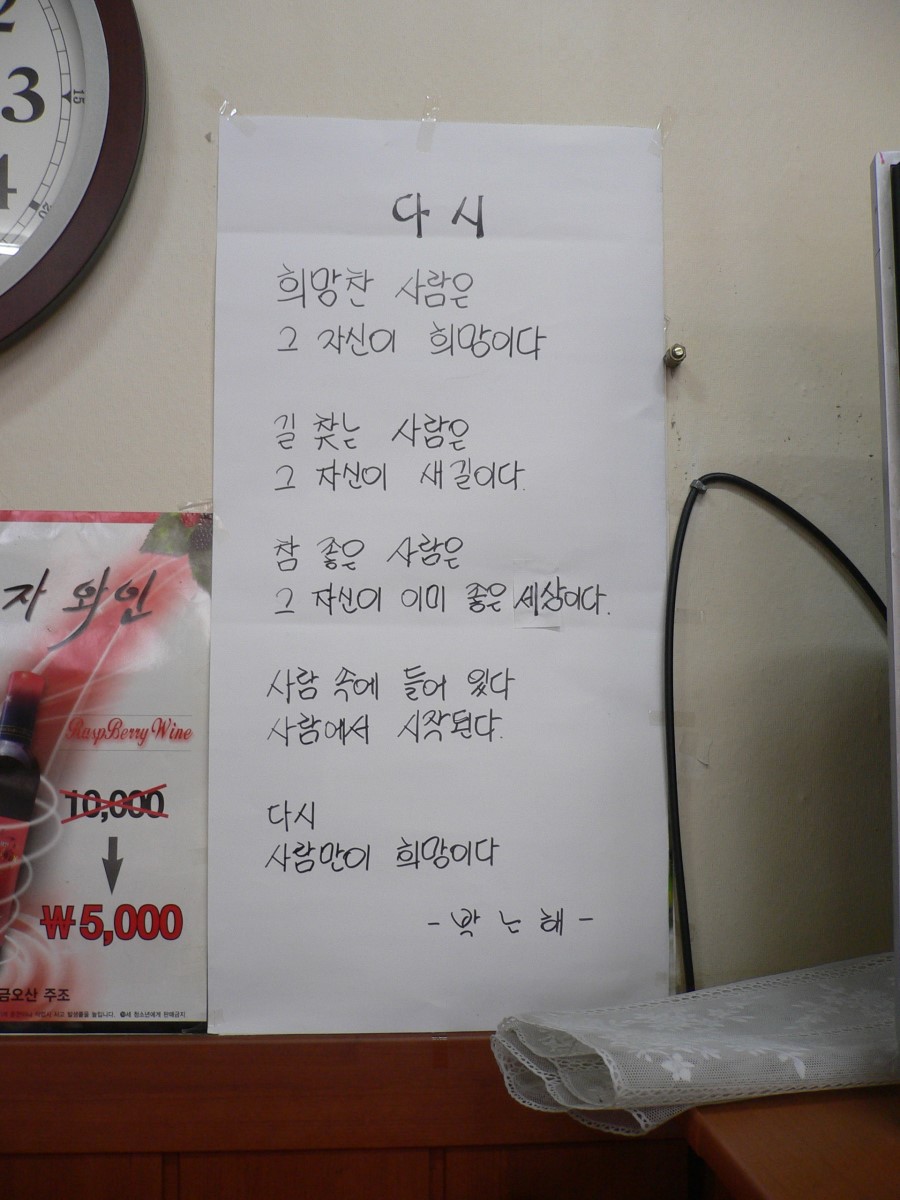 2
3
4
15
20
다시
희망찬 사람은
그 자신이 희망이다
길 찾는 사람은
그 자신이 새길이다.
참 좋은 사람은
그 자신이 이미 좋은 세상이다.
사람 속에 들어 있다
사람에서 시작된다.
다시
사람만이 희망이다
- 박노해 -
자 와인
RaspBerry Wine
10,000
₩5,000
금오산 주조